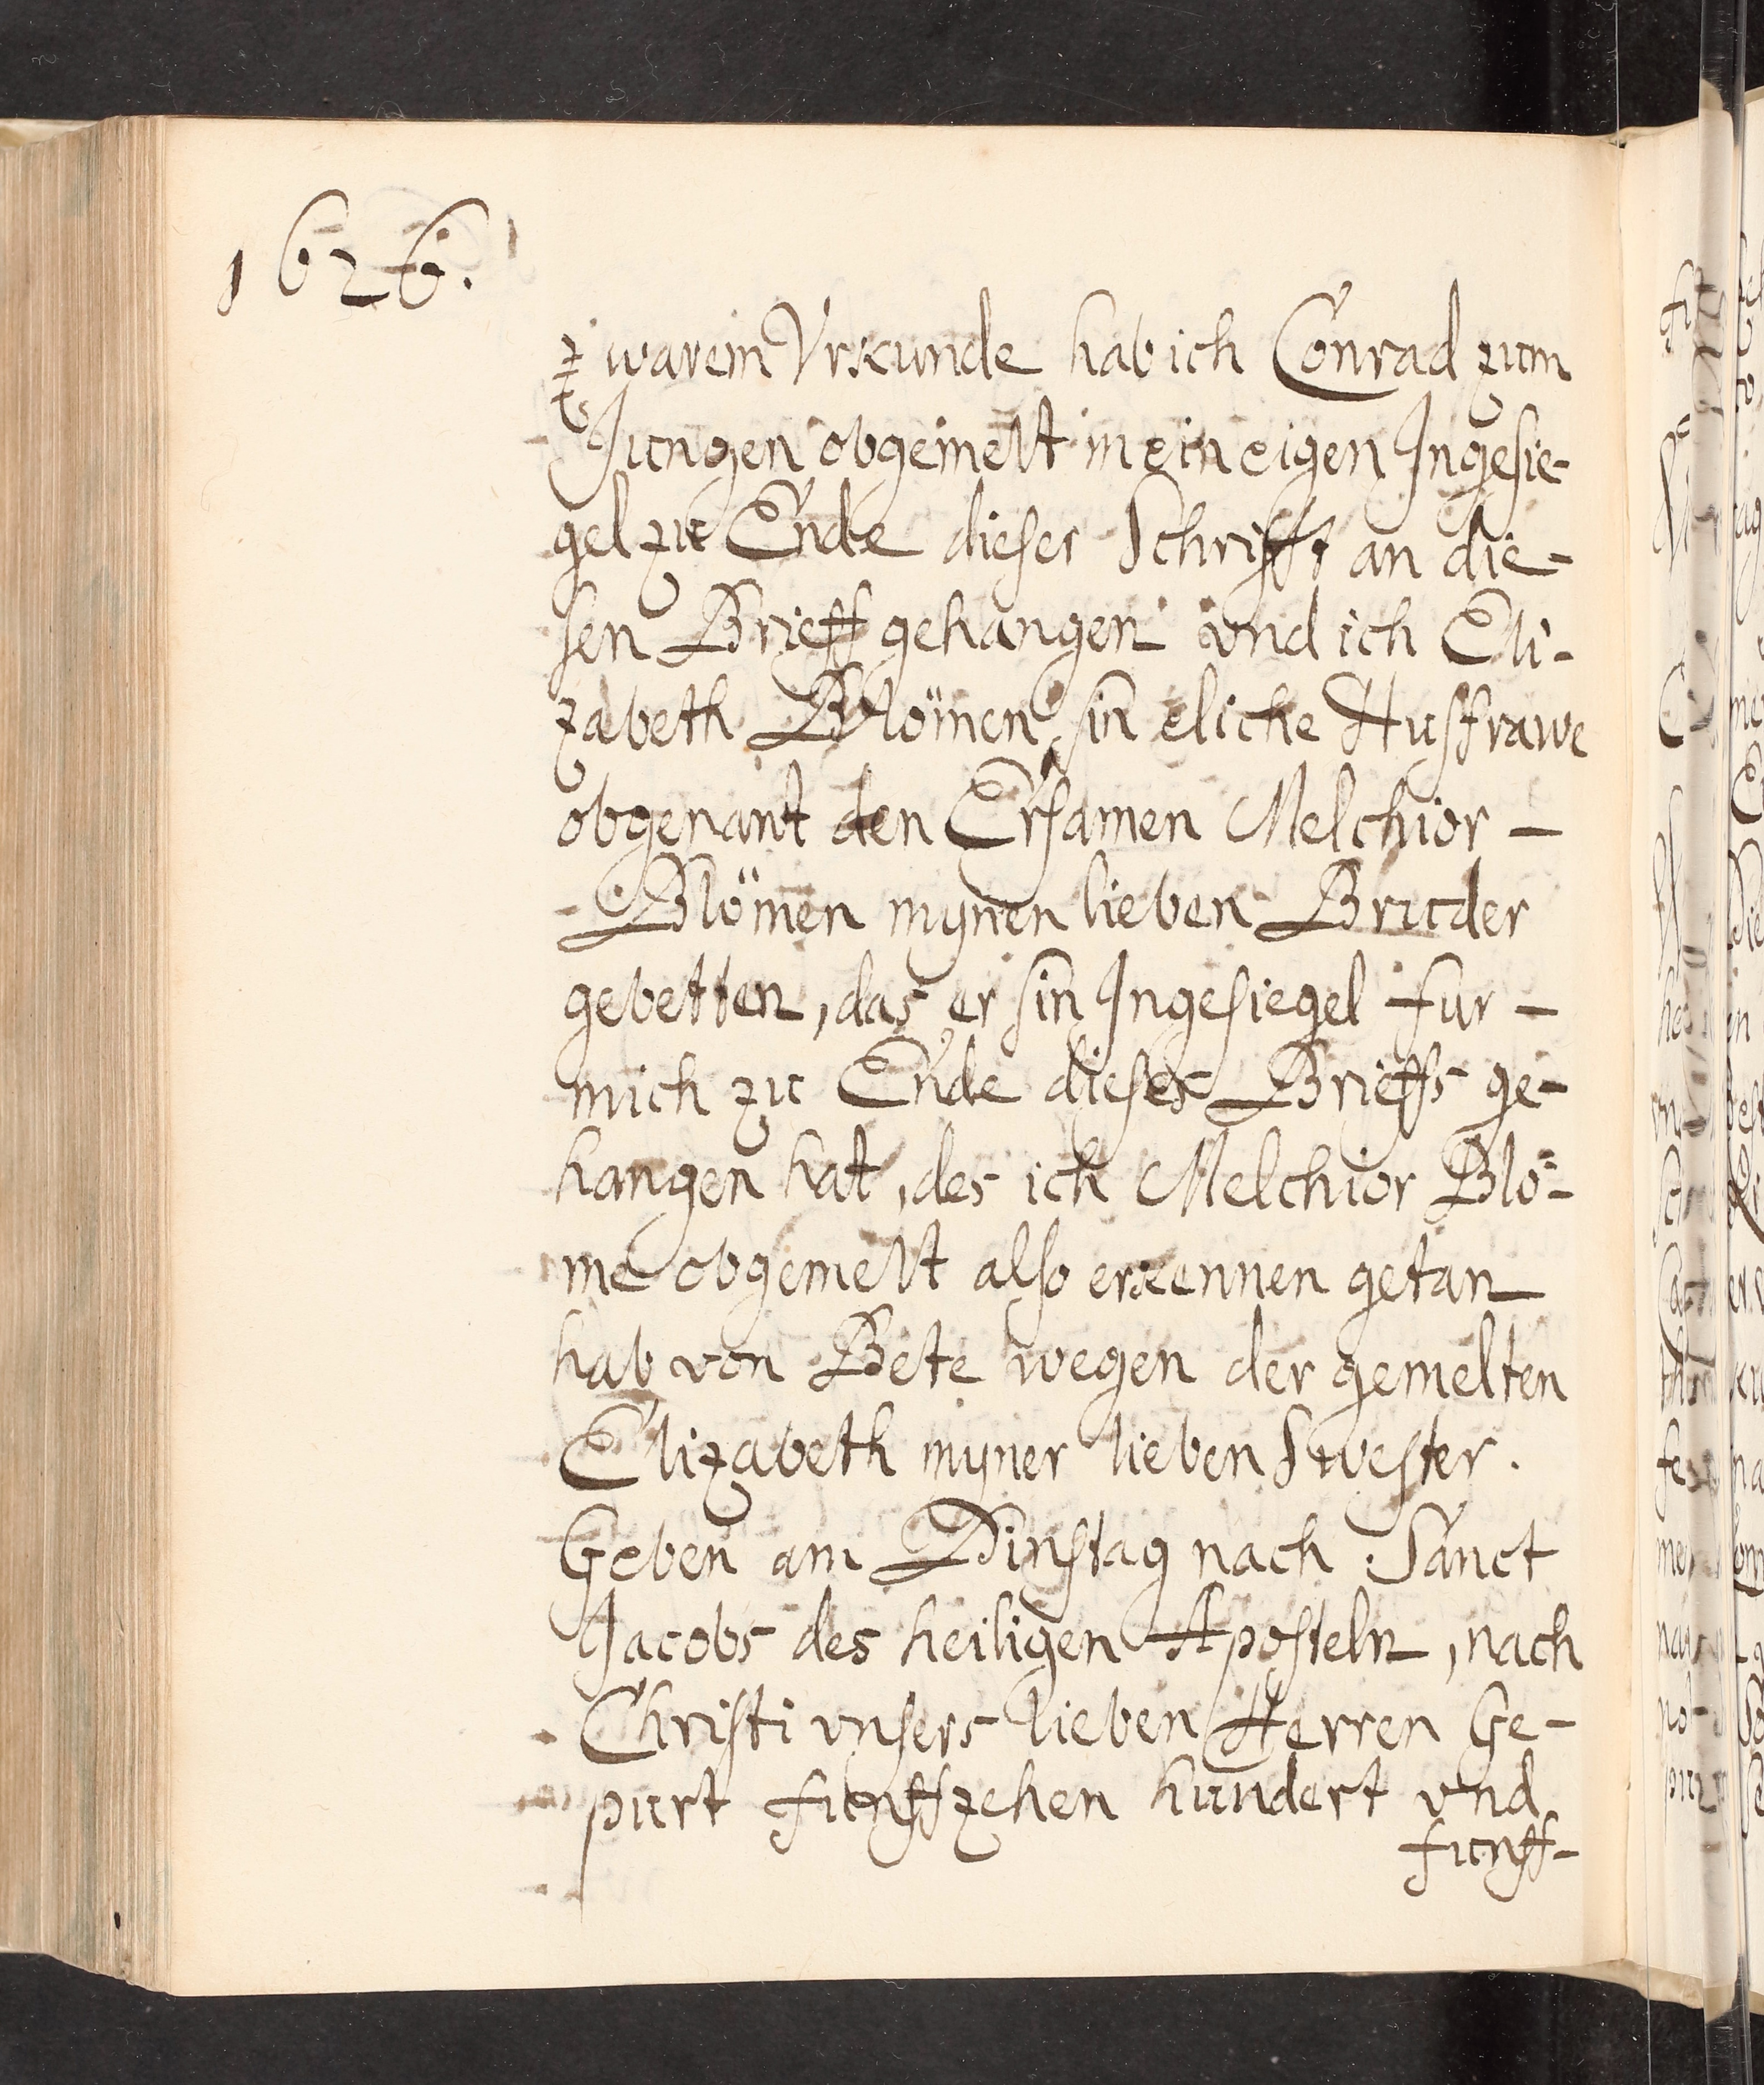 1626.
z warem Vrkunde hab ich Conrad zum
Jungen obgemelt mein eigen Ingesie-
gel zu Ende dieser Schrifft an die-
sen Brieff gehangen vnd ich Eli-
zabeth Blömen sin eliche Husfrawe
obgenant den Ersamen Melchior -
Blömen mynen lieben Bruder
gebetten, das er sin Ingesiegel fur -
mich zu Ende dieses Brieffs ge-
hangen hat, des ich Melchior Blö-
me obgemelt also erkennen getan
hab von Bete wegen der gemelten
Elizabeth myner lieben Swester.
Geben am Dinstag nach Sanct
Jacobs des heiligen Aposteln, nach
Christi vnsers lieben Herren Ge-
purt funffzehen hundert vnd
funff-